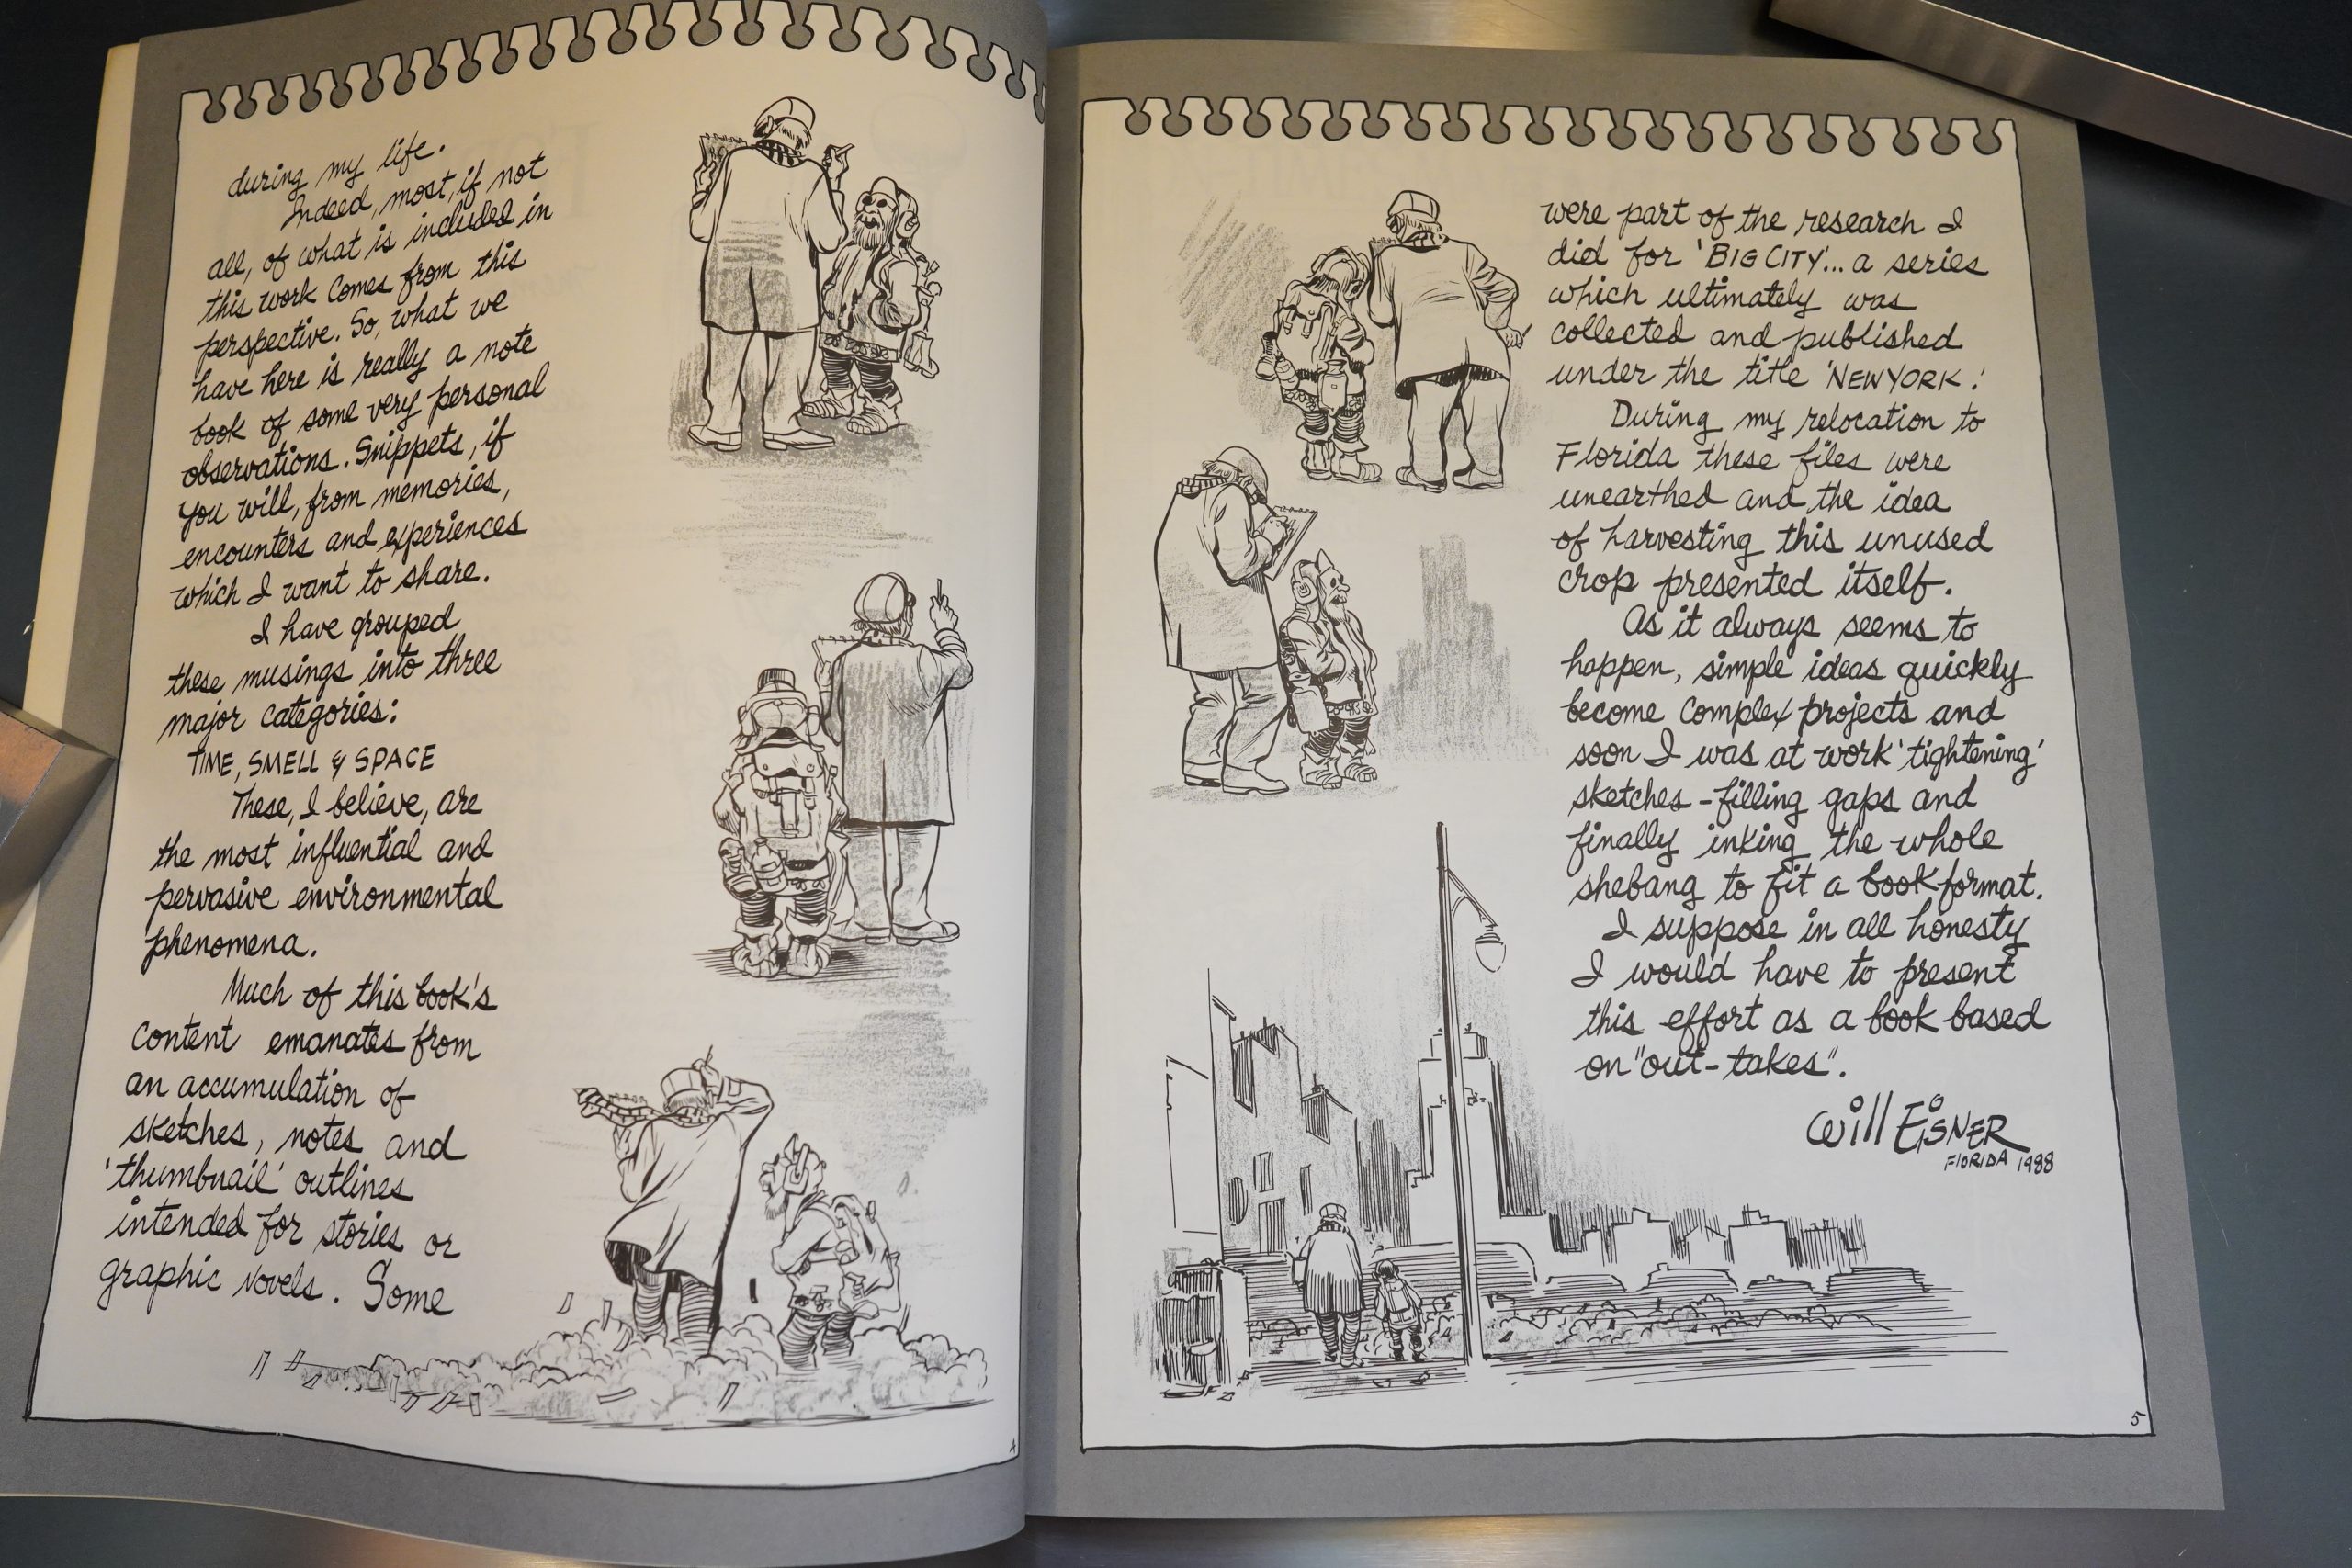 during my life.
Indeed, most, if not
all, of what is included in
this work comes from this
perspective. So, what we
have here is really a note
book of some very personal
observations. Snippets, if
you will, from memories,
encounters and experiences
which I want to share.
I have grouped
these musings into three
major categories:
TIME, SMELL & SPACE
These, I believe, are
the most influential and
pervasive environmental
phenomena.
Much of this book's
content emanates from
an accumulation of
sketches, notes and
'thumbnail' outlines
intended for stories or
graphic novels. Some
4
were part of the research I
did for 'BIG CITY'... a series
which ultimately was
collected and published
under the title 'NEW YORK'.
During my relocation to
Florida these files were
unearthed and the idea
of harvesting this unused
crop presented itself.
As it always seems to
happen, simple ideas quickly
become complex projects and
soon I was at work 'tightening'
sketches - filling gaps and
finally inking the whole
shebang to fit a book format.
I suppose in all honesty
I would have to present
this effort as a book based
on "out-takes".
Will EiSNER
FLORIDA 1988
5